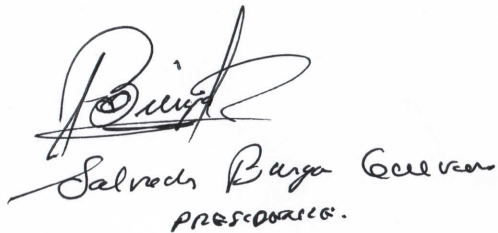 Salvador Burga Guevara
PRESIDENTE.